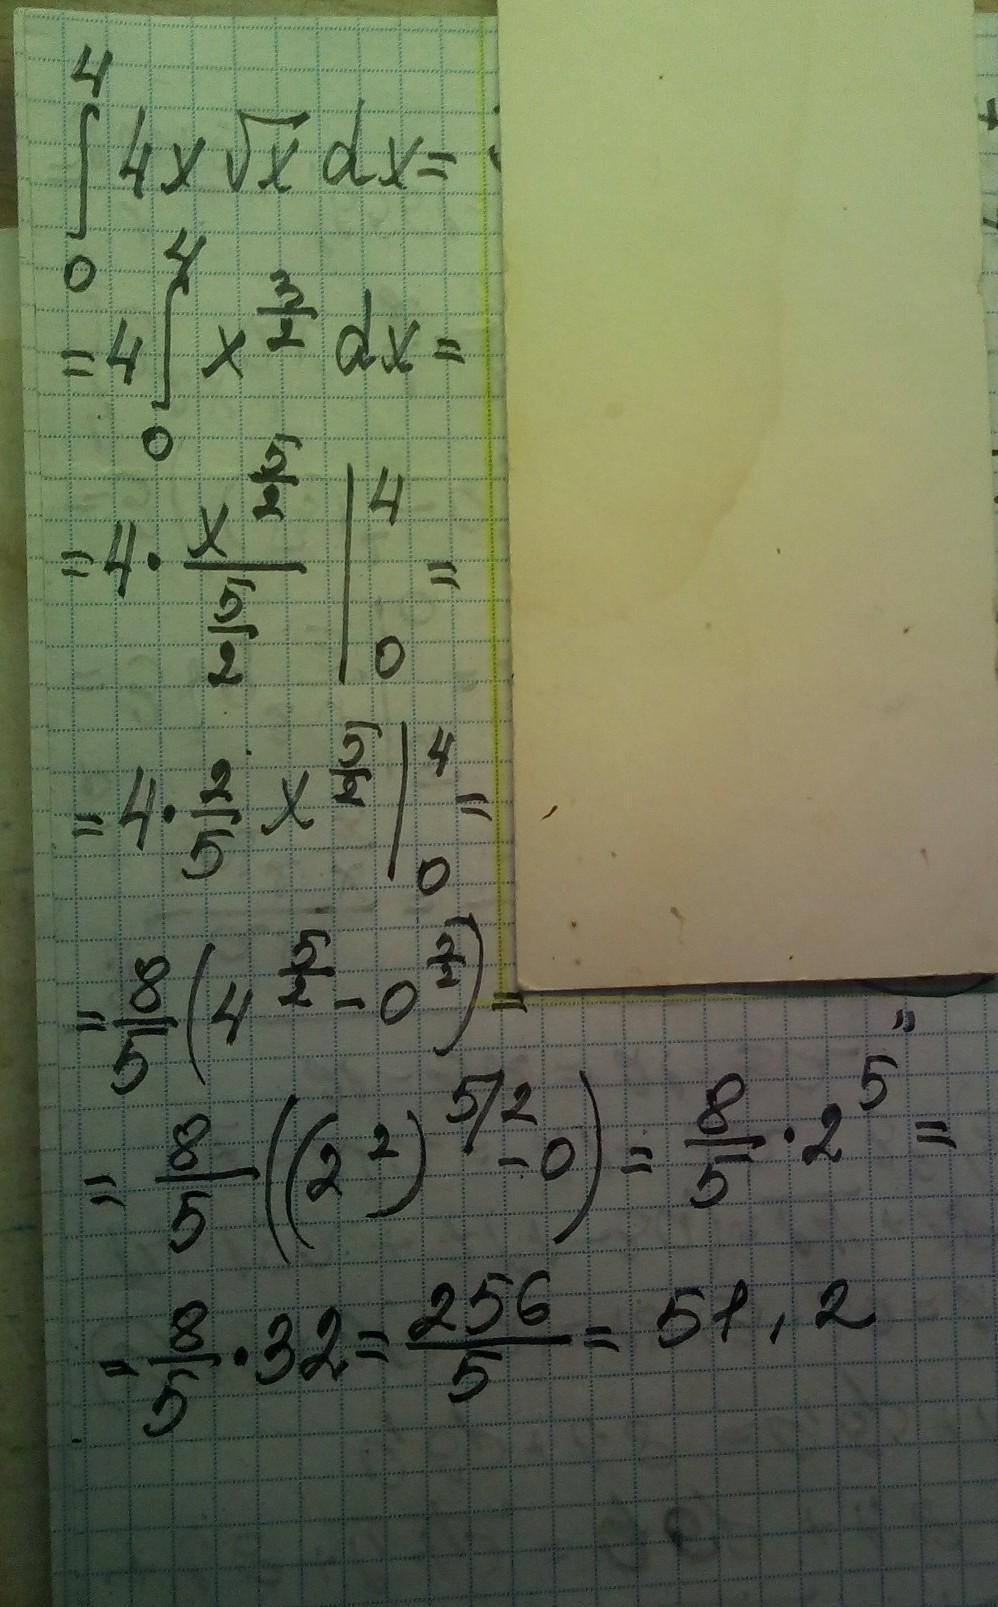 ∫₀⁴ 4x√x dx =
= 4 ∫₀⁴ x^(3/2) dx =
= 4 · x^(5/2) / (5/2) |₀⁴ =
= 4 · 2/5 x^(5/2) |₀⁴ =
= 8/5 (4^(5/2) - 0^(5/2)) =
= 8/5 ((2²)^(5/2) - 0) = 8/5 · 2⁵ =
= 8/5 · 32 = 256/5 = 51,2